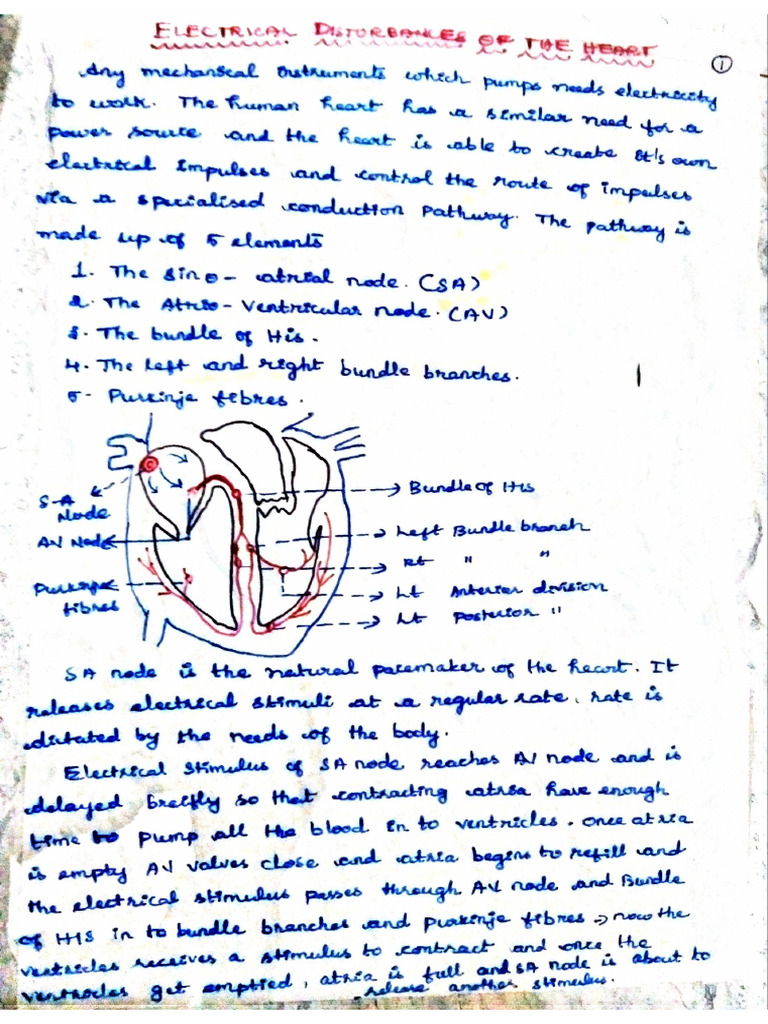 ELECTRICAL DISTURBANCES OF THE HEART
1
Any mechanical instruments which pumps needs electricity
to work. The human heart has a similar need for a
power source and the heart is able to create it's own
electrical impulses and control the route of impulses
via a specialised conduction pathway. The pathway is
made up of 5 elements
1. The sino - atrial node. (SA)
2. The Atrio - Ventricular node. (AV)
3. The bundle of His.
4. The left and right bundle branches.
5 - Purkinje fibres.
S-A
Node
AV Node
Purkinje
fibres
Bundle of His
Left Bundle branch
Rt " "
Lt Anterior division
Lt Posterior "
SA node is the natural pacemaker of the heart. It
releases electrical stimuli at a regular rate, rate is
dictated by the needs of the body.
Electrical stimulus of SA node reaches AV node and is
delayed breifly so that contracting atria have enough
time to pump all the blood in to ventricles. Once atria
is empty AV valves close and atria begins to refill and
the electrical stimulus passes through AV node and Bundle
of HIS in to bundle branches and purkinje fibres → now the
ventricles receives a stimulus to contract and once the
ventricles get emptied, atria is full and SA node is about to
release another stimulus.